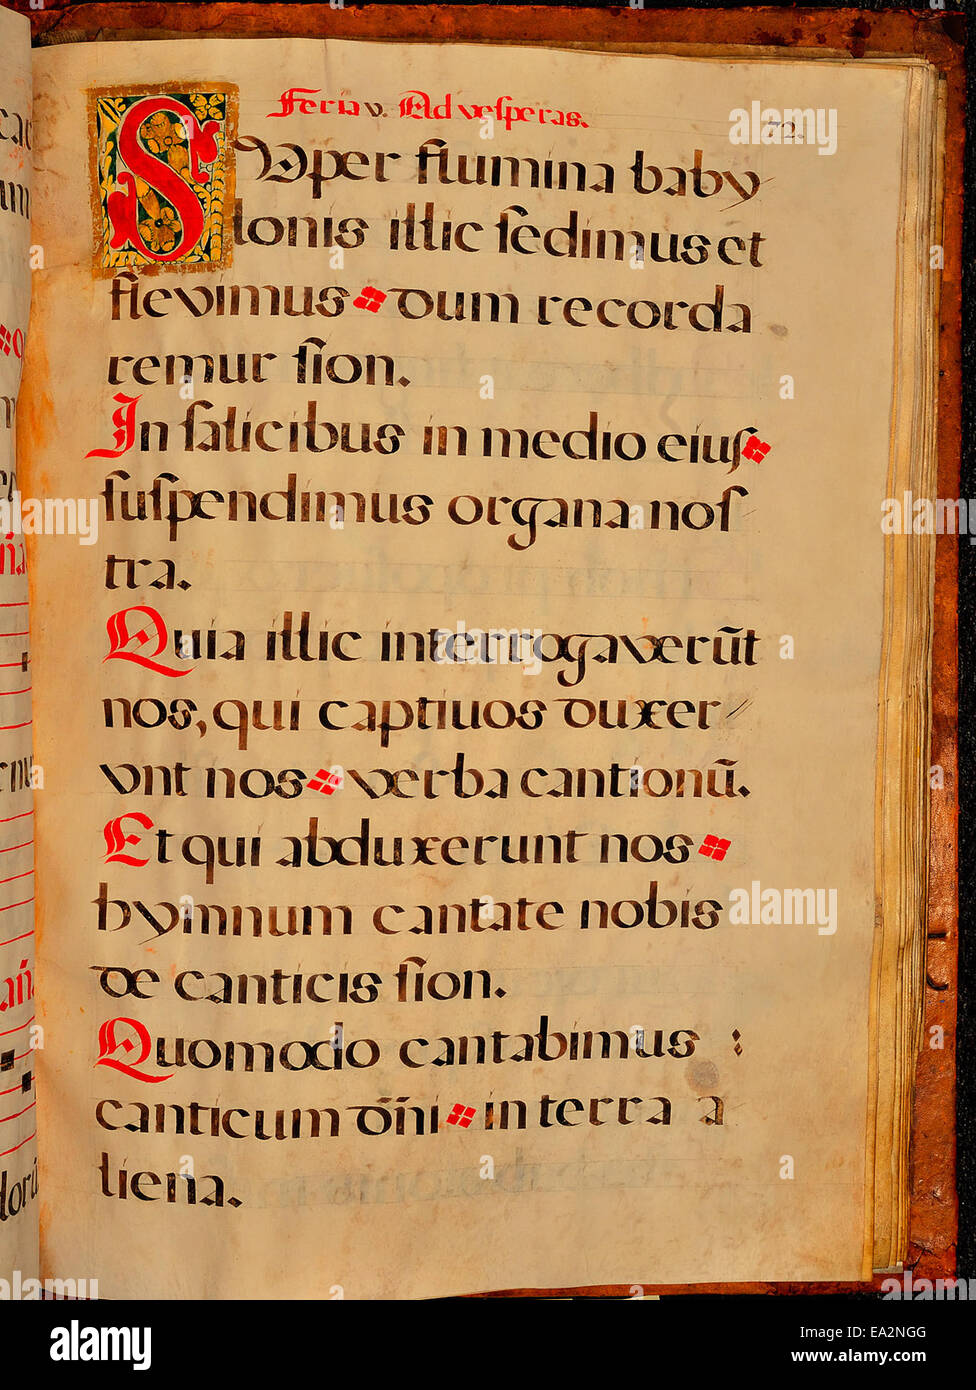 Feria v. Ad vesperas.
72.
SVper flumina baby
lonis illic sedimus et
flevimus dum recorda
remur sion.
In salicibus in medio eius
suspendimus organa nos
tra.
Quia illic interrogaverũt
nos, qui captivos duxer
vnt nos verba cantionũ.
Et qui abduxerunt nos
hymnum cantate nobis
de canticis sion.
Quomodo cantabimus :
canticum dñi in terra a
liena.
alamy
Image ID: EA2NGG
www.alamy.com